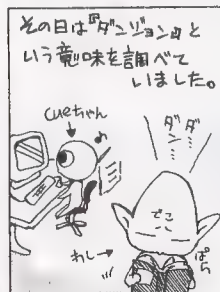 その日は『ダンジョン』と
いう意味を調べて
いました。
cueちゃん
♪
ダンダン…
でこ
わし→
ぱら